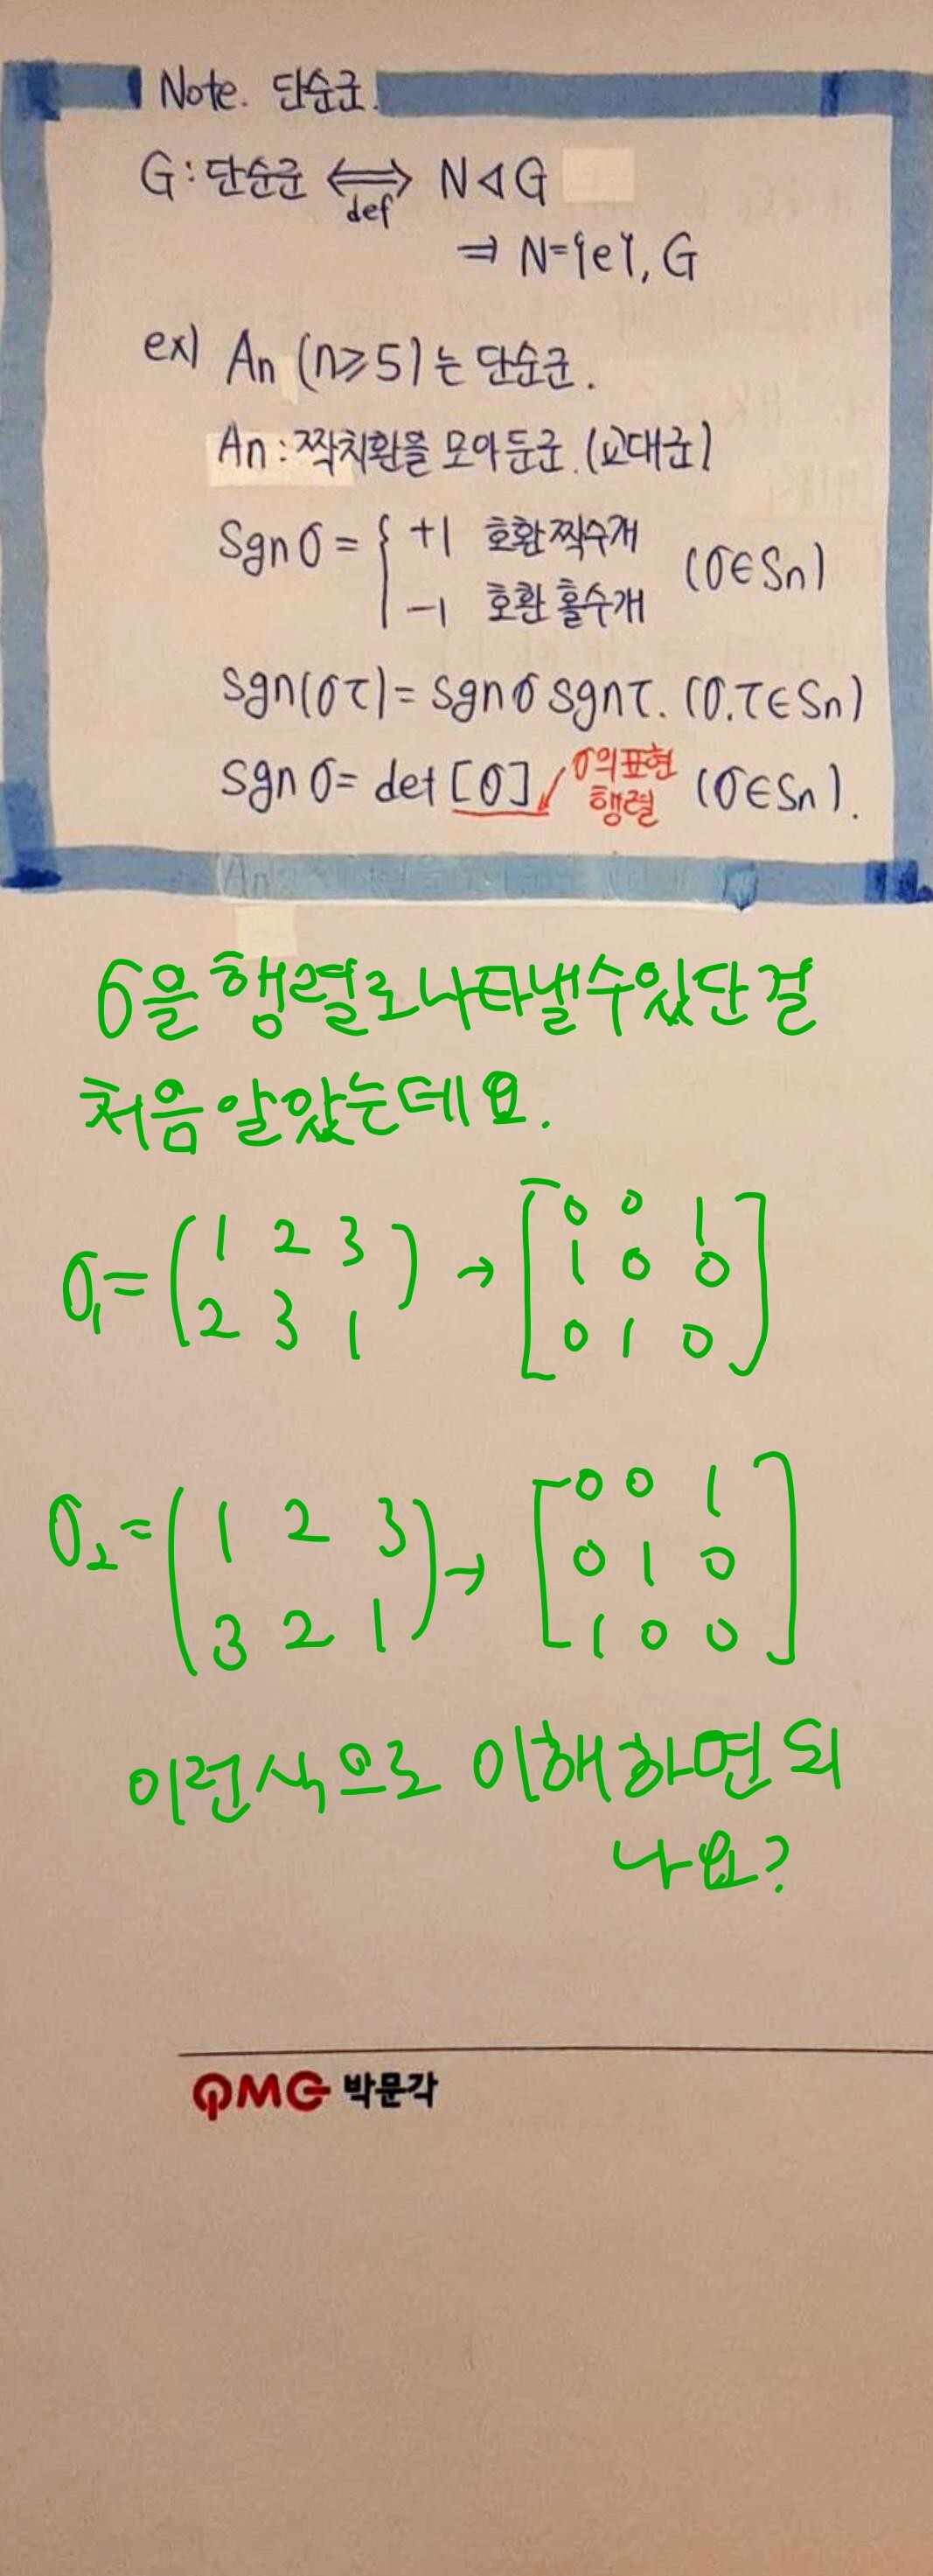 Note. 단순군.
G : 단순군 ⟺ N ◁ G
def
⇒ N={e}, G
ex) An (n≥5)는 단순군.
An : 짝치환을 모아둔군. (교대군)
Sgn σ = { +1 호환 짝수개
-1 호환 홀수개 (σ∈Sn)
Sgn(στ) = sgnσ sgnτ. (σ.τ∈Sn)
Sgn σ = det [σ] σ의 표현 행렬 (σ∈Sn).
An
σ을 행렬로 나타낼 수 있단 걸
처음 알았는데요.
σ₁ = ( 1 2 3 ) → [ 0 0 1
2 3 1 1 0 0
0 1 0 ]
σ₂ = ( 1 2 3 ) → [ 0 0 1
3 2 1 0 1 0
1 0 0 ]
이런식으로 이해하면 되
나요?
PMG 박문각